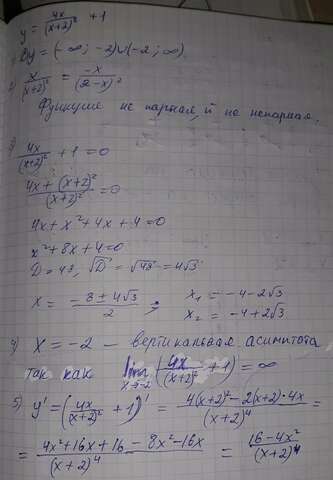 y = 4x/(x+2)² + 1
Dy = (-∞; -2)∪(-2; ∞).
2) x/(x+2)² = -x/(2-x)²
Функция не парная, и не непарная.
3) 4x/(x+2)² + 1 = 0
(4x + (x+2)²)/(x+2)² = 0
4x + x² + 4x + 4 = 0
x² + 8x + 4 = 0
D = 48, √D = √48 = 4√3
x = (-8 ± 4√3)/2 ; x₁ = -4-2√3
x₂ = -4+2√3
4) x = -2 - вертикальная асимптота
так как lim x→-2 (4x/(x+2)² + 1) = ∞
5) y' = (4x/(x+2)² + 1)' = (4(x+2)² - 2(x+2)·4x)/(x+2)⁴ =
= (4x² + 16x + 16 - 8x² - 16x)/(x+2)⁴ = (16-4x²)/(x+2)⁴